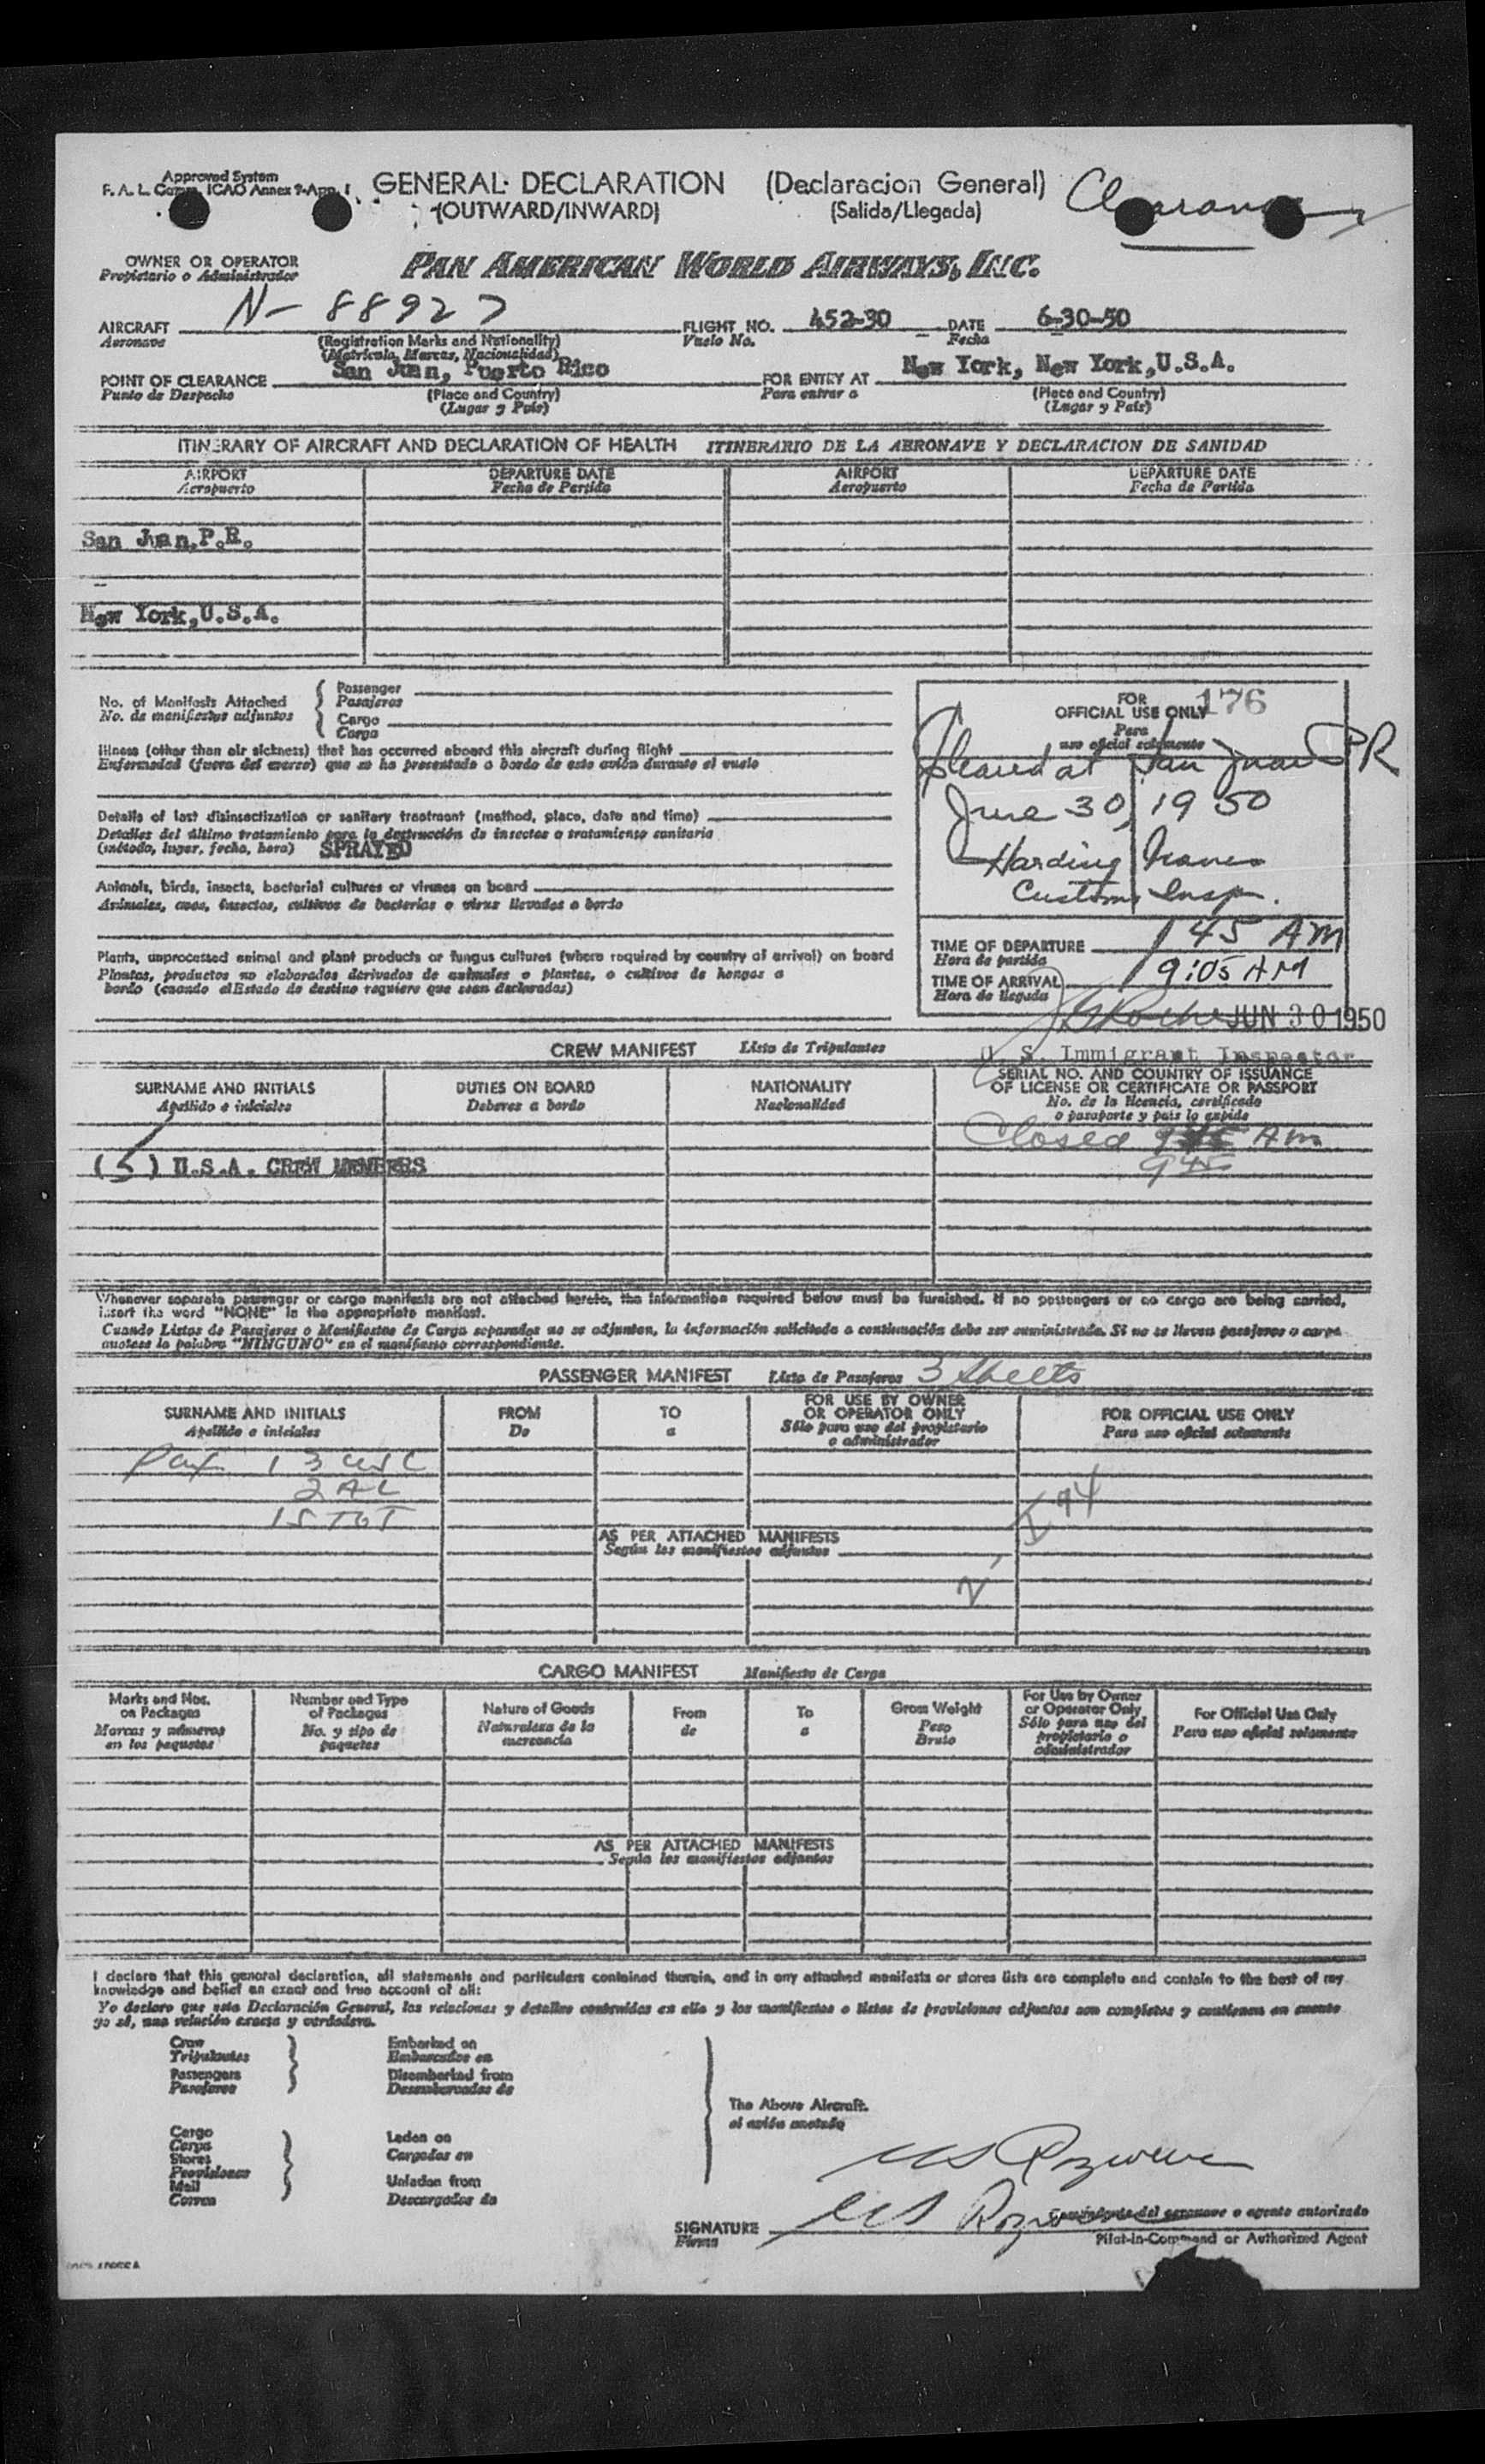 Approved System
F. A. L. Comm. ICAO Annex 9-App. 1
GENERAL DECLARATION (Declaracion General)
(OUTWARD/INWARD) (Salida/Llegada)
Clearance
OWNER OR OPERATOR
Propietario o Administrador
PAN AMERICAN WORLD AIRWAYS, INC.
AIRCRAFT N-88927 FLIGHT NO. 452-30 DATE 6-30-50
Aeronave (Registration Marks and Nationality) Vuelo No. Fecha
(Matrícula, Marcas, Nacionalidad)
POINT OF CLEARANCE San Juan, Puerto Rico FOR ENTRY AT New York, New York,U.S.A.
Punto de Despacho (Place and Country) Para entrar a (Place and Country)
(Lugar y País) (Lugar y País)
ITINERARY OF AIRCRAFT AND DECLARATION OF HEALTH ITINERARIO DE LA AERONAVE Y DECLARACION DE SANIDAD
AIRPORT DEPARTURE DATE AIRPORT DEPARTURE DATE
Aeropuerto Fecha de Partida Aeropuerto Fecha de Partida
San Juan,P.R.
New York,U.S.A.
No. of Manifests Attached
No. de manifiestos adjuntos
Passenger
Pasajeros
Cargo
Carga
Illness (other than air sickness) that has occurred aboard this aircraft during flight
Enfermedad (fuera del mareo) que se ha presentado a bordo de este avión durante el vuelo
Details of last disinsectization or sanitary treatment (method, place, date and time)
Detalles del último tratamiento para la destrucción de insectos o tratamiento sanitario
(método, lugar, fecha, hora) SPRAYED
Animals, birds, insects, bacterial cultures or viruses on board
Animales, aves, insectos, cultivos de bacterias o virus llevados a bordo
Plants, unprocessed animal and plant products or fungus cultures (where required by country of arrival) on board
Plantas, productos no elaborados derivados de animales o plantas, o cultivos de hongos a
bordo (cuando el Estado de destino requiere que sean declarados)
FOR 176
OFFICIAL USE ONLY
Para
uso oficial solamente
Cleared at San Juan PR
June 30, 1950
Harding
Customs Insp.
TIME OF DEPARTURE 1 45 AM
Hora de partida
TIME OF ARRIVAL 9:05 AM
Hora de llegada
JUN 30 1950
U. S. Immigrant Inspector
CREW MANIFEST Lista de Tripulantes
SURNAME AND INITIALS DUTIES ON BOARD NATIONALITY SERIAL NO. AND COUNTRY OF ISSUANCE
OF LICENSE OR CERTIFICATE OR PASSPORT
Apellido e iniciales Deberes a bordo Nacionalidad No. de la licencia, certificado
o pasaporte y país lo expide
Closed AM
945
(5) U.S.A. CREW MEMBERS
Whenever separate passenger or cargo manifests are not attached hereto, the information required below must be furnished. If no passengers or no cargo are being carried,
insert the word "NONE" in the appropriate manifest.
Cuando Listas de Pasajeros o Manifiestos de Carga separados no se adjunten, la información solicitada a continuación debe ser suministrada. Si no se llevan pasajeros o carga
anótese la palabra "NINGUNO" en el manifiesto correspondiente.
PASSENGER MANIFEST Lista de Pasajeros 3 Sheets
SURNAME AND INITIALS FROM TO FOR USE BY OWNER
OR OPERATOR ONLY FOR OFFICIAL USE ONLY
Apellido e iniciales De a Sólo para uso del propietario
o administrador Para uso oficial solamente
Pax 13 USC
2 AL
15 TOT
I 94
AS PER ATTACHED MANIFESTS
Según los manifiestos adjuntos
CARGO MANIFEST Manifiesto de Carga
Marks and Nos.
on Packages
Marcas y números
en los paquetes
Number and Type
of Packages
No. y tipo de
paquetes
Nature of Goods
Naturaleza de la
mercancía
From
de
To
a
Gross Weight
Peso
Bruto
For Use by Owner
or Operator Only
Sólo para uso del
propietario o
administrador
For Official Use Only
Para uso oficial solamente
AS PER ATTACHED MANIFESTS
Según los manifiestos adjuntos
I declare that this general declaration, all statements and particulars contained therein, and in any attached manifests or stores lists are complete and contain to the best of my
knowledge and belief an exact and true account of all:
Yo declaro que esta Declaración General, las relaciones y detalles contenidos en ella y los manifiestos o listas de provisiones adjuntos son completos y contienen en cuanto
yo sé, una relación exacta y verdadera.
Crew
Tripulantes
Passengers
Pasajeros
Embarked on
Embarcados en
Disembarked from
Desembarcados de
The Above Aircraft.
el avión anotado
Cargo
Carga
Stores
Provisiones
Mail
Correo
Laden on
Cargados en
Unladen from
Descargados de
SIGNATURE
Firma
Comandante del aeronave o agente autorizado
Pilot-in-Command or Authorized Agent